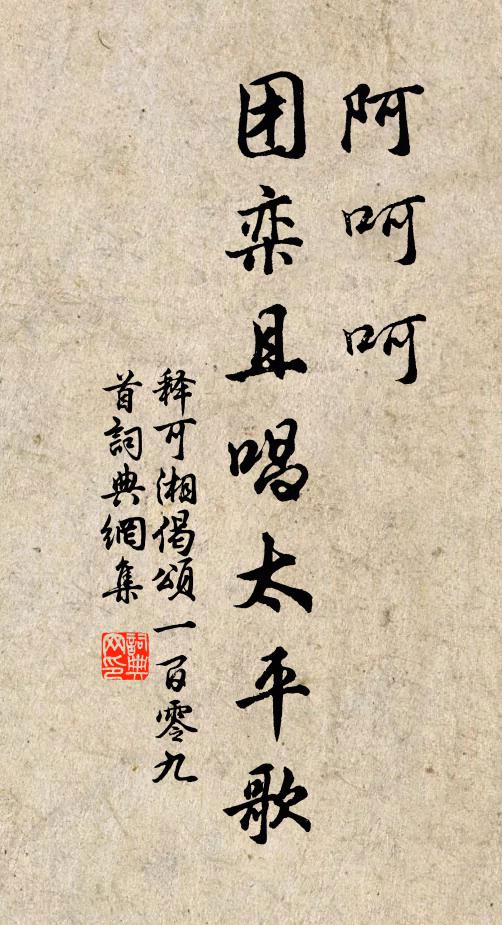 阿呵呵
团栾且唱太平歌
释可湘偈頌一百零九
首詞典網集
詞典网印